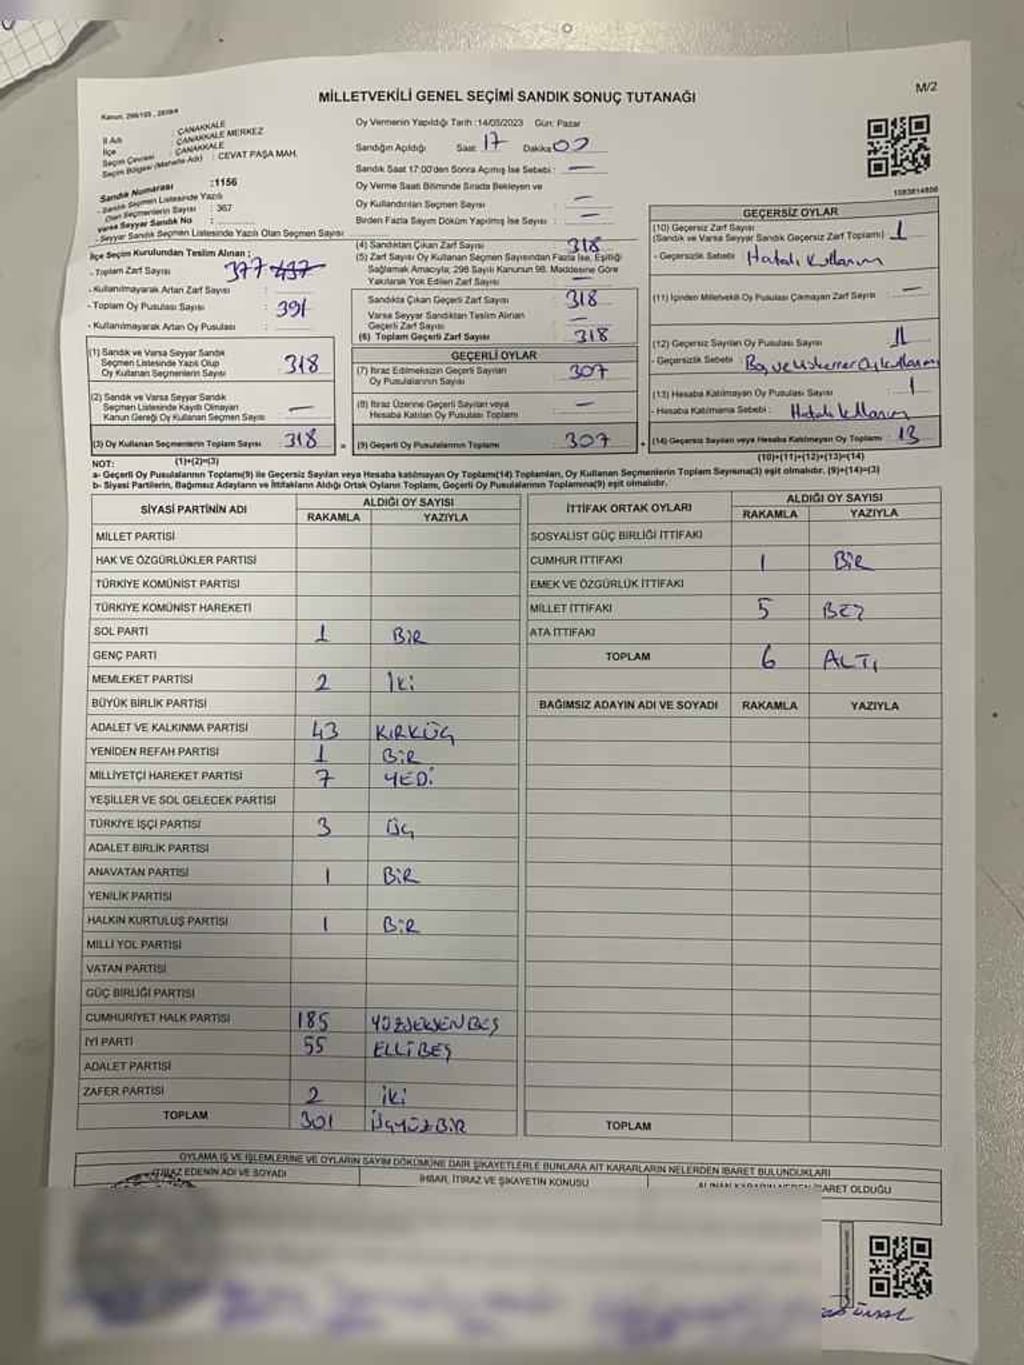 M/2
MİLLETVEKİLİ GENEL SEÇİMİ SANDIK SONUÇ TUTANAĞI
İl Adı : ÇANAKKALE
İlçe : ÇANAKKALE MERKEZ
Seçim Çevresi : ÇANAKKALE
Seçim Bölgesi (Mahalle Adı) : CEVAT PAŞA MAH.
Sandık Numarası :1156
- Sandık Seçmen Listesinde Yazılı
Olan Seçmenlerin Sayısı : 367
Varsa Seyyar Sandık No :
- Seyyar Sandık Seçmen Listesinde Yazılı Olan Seçmen Sayısı
İlçe Seçim Kurulundan Teslim Alınan ;
- Toplam Zarf Sayısı 377 437
- Kullanılmayarak Artan Zarf Sayısı :
- Toplam Oy Pusulası Sayısı : 391
- Kullanılmayarak Artan Oy Pusulası :
(1) Sandık ve Varsa Seyyar Sandık
Seçmen Listesinde Yazılı Olup
Oy Kullanan Seçmenlerin Sayısı 318
(2) Sandık ve Varsa Seyyar Sandık
Seçmen Listesinde Kayıtlı Olmayan
Kanun Gereği Oy Kullanan Seçmen Sayısı —
(3) Oy Kullanan Seçmenlerin Toplam Sayısı 318 =
Oy Vermenin Yapıldığı Tarih :14/05/2023 Gün: Pazar
Sandığın Açıldığı Saat 17 Dakika 00
Sandık Saat 17:00'den Sonra Açılmış İse Sebebi : —
Oy Verme Saati Bitiminde Sırada Bekleyen ve
Oy Kullandırılan Seçmen Sayısı : —
Birden Fazla Sayım Döküm Yapılmış İse Sayısı : —
(4) Sandıktan Çıkan Zarf Sayısı 318
(5) Zarf Sayısı Oy Kullanan Seçmen Sayısından Fazla İse, Eşitliği
Sağlamak Amacıyla; 298 Sayılı Kanunun 98. Maddesine Göre
Yakılarak Yok Edilen Zarf Sayısı : —
Sandıkta Çıkan Geçerli Zarf Sayısı 318
Varsa Seyyar Sandıktan Teslim Alınan
Geçerli Zarf Sayısı —
(6) Toplam Geçerli Zarf Sayısı 318
GEÇERLİ OYLAR
(7) İtiraz Edilmeksizin Geçerli Sayılan
Oy Pusulalarının Sayısı 307
(8) İtiraz Üzerine Geçerli Sayılan veya
Hesaba Katılan Oy Pusulası Toplamı —
(9) Geçerli Oy Pusulalarının Toplamı 307 +
1083814806
GEÇERSİZ OYLAR
(10) Geçersiz Zarf Sayısı
(Sandık ve Varsa Seyyar Sandık Geçersiz Zarf Toplamı) 1
- Geçersizlik Sebebi : Hatalı Kullanım
(11) İçinden Milletvekili Oy Pusulası Çıkmayan Zarf Sayısı —
(12) Geçersiz Sayılan Oy Pusulası Sayısı 11
- Geçersizlik Sebebi : Boş ve
(13) Hesaba Katılmayan Oy Pusulası Sayısı 1
- Hesaba Katılmama Sebebi : Hatalı kullanım
(14) Geçersiz Sayılan veya Hesaba Katılmayan Oy Toplamı 13
NOT: (1)+(2)=(3) (10)+(11)+(12)+(13)=(14)
a- Geçerli Oy Pusulalarının Toplamı(9) ile Geçersiz Sayılan veya Hesaba katılmayan Oy Toplamı(14) Toplamları, Oy Kullanan Seçmenlerin Toplam Sayısına(3) eşit olmalıdır. (9)+(14)=(3)
b- Siyasi Partilerin, Bağımsız Adayların ve İttifakların Aldığı Ortak Oyların Toplamı, Geçerli Oy Pusulalarının Toplamına(9) eşit olmalıdır.
SİYASİ PARTİNİN ADI ALDIĞI OY SAYISI
RAKAMLA YAZIYLA
MİLLET PARTİSİ
HAK VE ÖZGÜRLÜKLER PARTİSİ
TÜRKİYE KOMÜNİST PARTİSİ
TÜRKİYE KOMÜNİST HAREKETİ
SOL PARTİ 1 BİR
GENÇ PARTİ
MEMLEKET PARTİSİ 2 İki
BÜYÜK BİRLİK PARTİSİ
ADALET VE KALKINMA PARTİSİ 43 KIRKÜÇ
YENİDEN REFAH PARTİSİ 1 BİR
MİLLİYETÇİ HAREKET PARTİSİ 7 YEDİ
YEŞİLLER VE SOL GELECEK PARTİSİ
TÜRKİYE İŞÇİ PARTİSİ 3 ÜÇ
ADALET BİRLİK PARTİSİ
ANAVATAN PARTİSİ 1 BİR
YENİLİK PARTİSİ
HALKIN KURTULUŞ PARTİSİ 1 BİR
MİLLİ YOL PARTİSİ
VATAN PARTİSİ
GÜÇ BİRLİĞİ PARTİSİ
CUMHURİYET HALK PARTİSİ 185 YÜZSEKSENBEŞ
İYİ PARTİ 55 ELLİBEŞ
ADALET PARTİSİ
ZAFER PARTİSİ 2 İKİ
TOPLAM 301 ÜÇYÜZBİR
İTTİFAK ORTAK OYLARI ALDIĞI OY SAYISI
RAKAMLA YAZIYLA
SOSYALİST GÜÇ BİRLİĞİ İTTİFAKI
CUMHUR İTTİFAKI 1 BİR
EMEK VE ÖZGÜRLÜK İTTİFAKI
MİLLET İTTİFAKI 5 BEŞ
ATA İTTİFAKI
TOPLAM 6 ALTI
BAĞIMSIZ ADAYIN ADI VE SOYADI RAKAMLA YAZIYLA
TOPLAM
OYLAMA İŞ VE İŞLEMLERİNE VE OYLARIN SAYIM DÖKÜMÜNE DAİR ŞİKAYETLERLE BUNLARA AİT KARARLARIN NELERDEN İBARET BULUNDUKLARI
İTİRAZ EDENİN ADI VE SOYADI
İHBAR, İTİRAZ VE ŞİKAYETİN KONUSU
ALINAN KARARIN NEDEN İBARET OLDUĞU